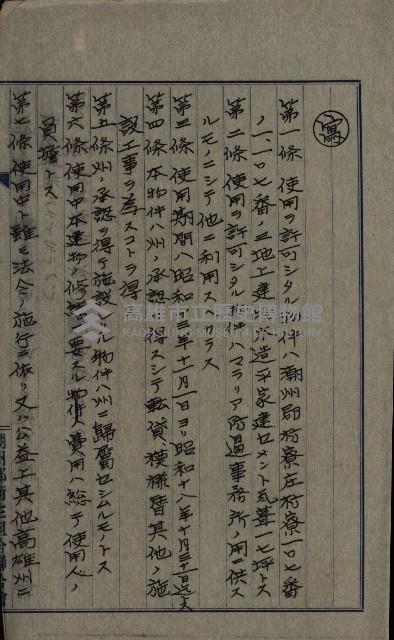 寫
第一條 使用ヲ許可シタル物件ハ潮州郡枋寮庄枋寮一〇七番
ノ一、一〇七番ノ三地上建 木造平家建セメント瓦葺一七坪トス
第二條 使用ヲ許可シタル物件ハマラリア防遏事務所ノ用ニ供ス
ルモノニシテ他ニ利用スル ラス
第三條 使用期間ハ昭和 三年十一月一日ヨリ昭和十八年十月三十一日迄トス
第四條 本物件ハ州ノ承認ヲ得スシテ轉貸、模様替其他ノ施
設工事ヲ為スコトヲ得
第五條 州ノ承認ヲ得テ施設シタル物件ハ州ニ歸屬セシムルモノトス
第六條 使用中本建物ノ修繕ニ要スル物件費用ハ総テ使用人ノ
負擔トス
第七條 使用中ト雖モ法令ノ施行ニ依リ又ハ公益上其他高雄州ニ
高雄市立歷史博物館
KAOHSIUNG MUSEUM OF HISTORY